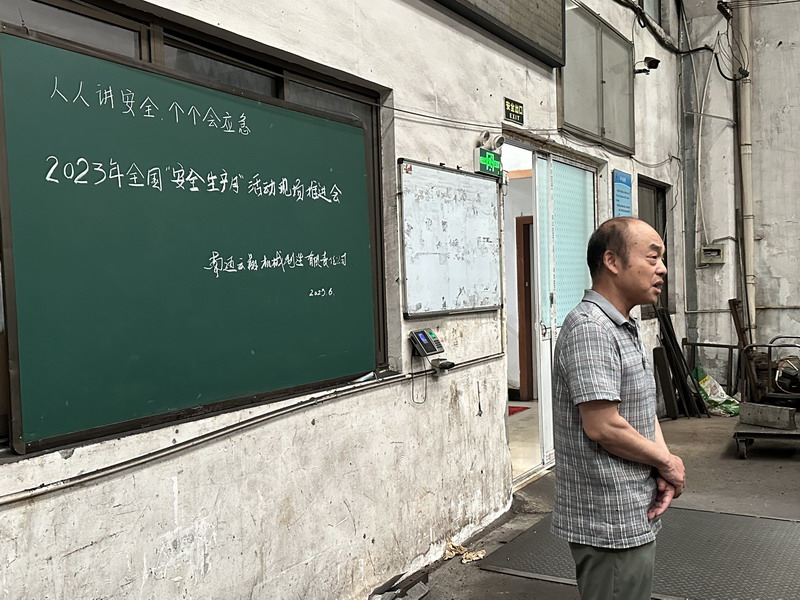 人人讲安全.个个会应急
2023年全国"安全生产月"活动现场推进会
南通云翔机械制造有限责任公司
2023.6.
安全出口
EXIT